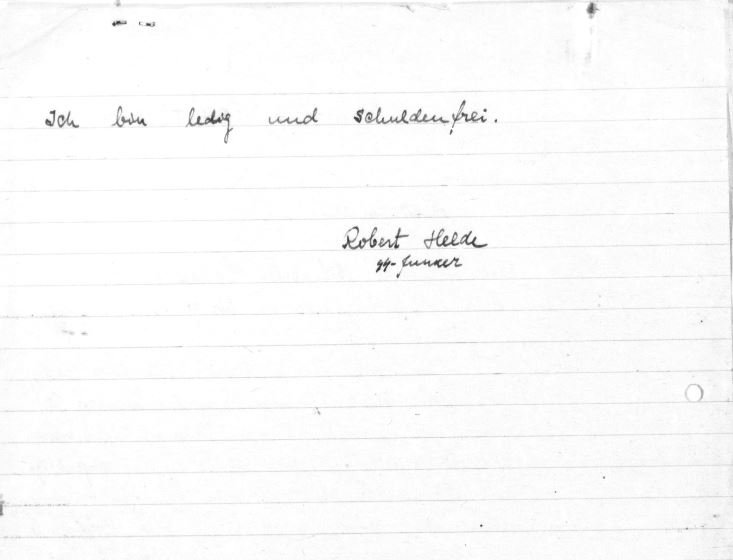 Ich bin ledig und schuldenfrei.
Robert Helde
SS-Junker